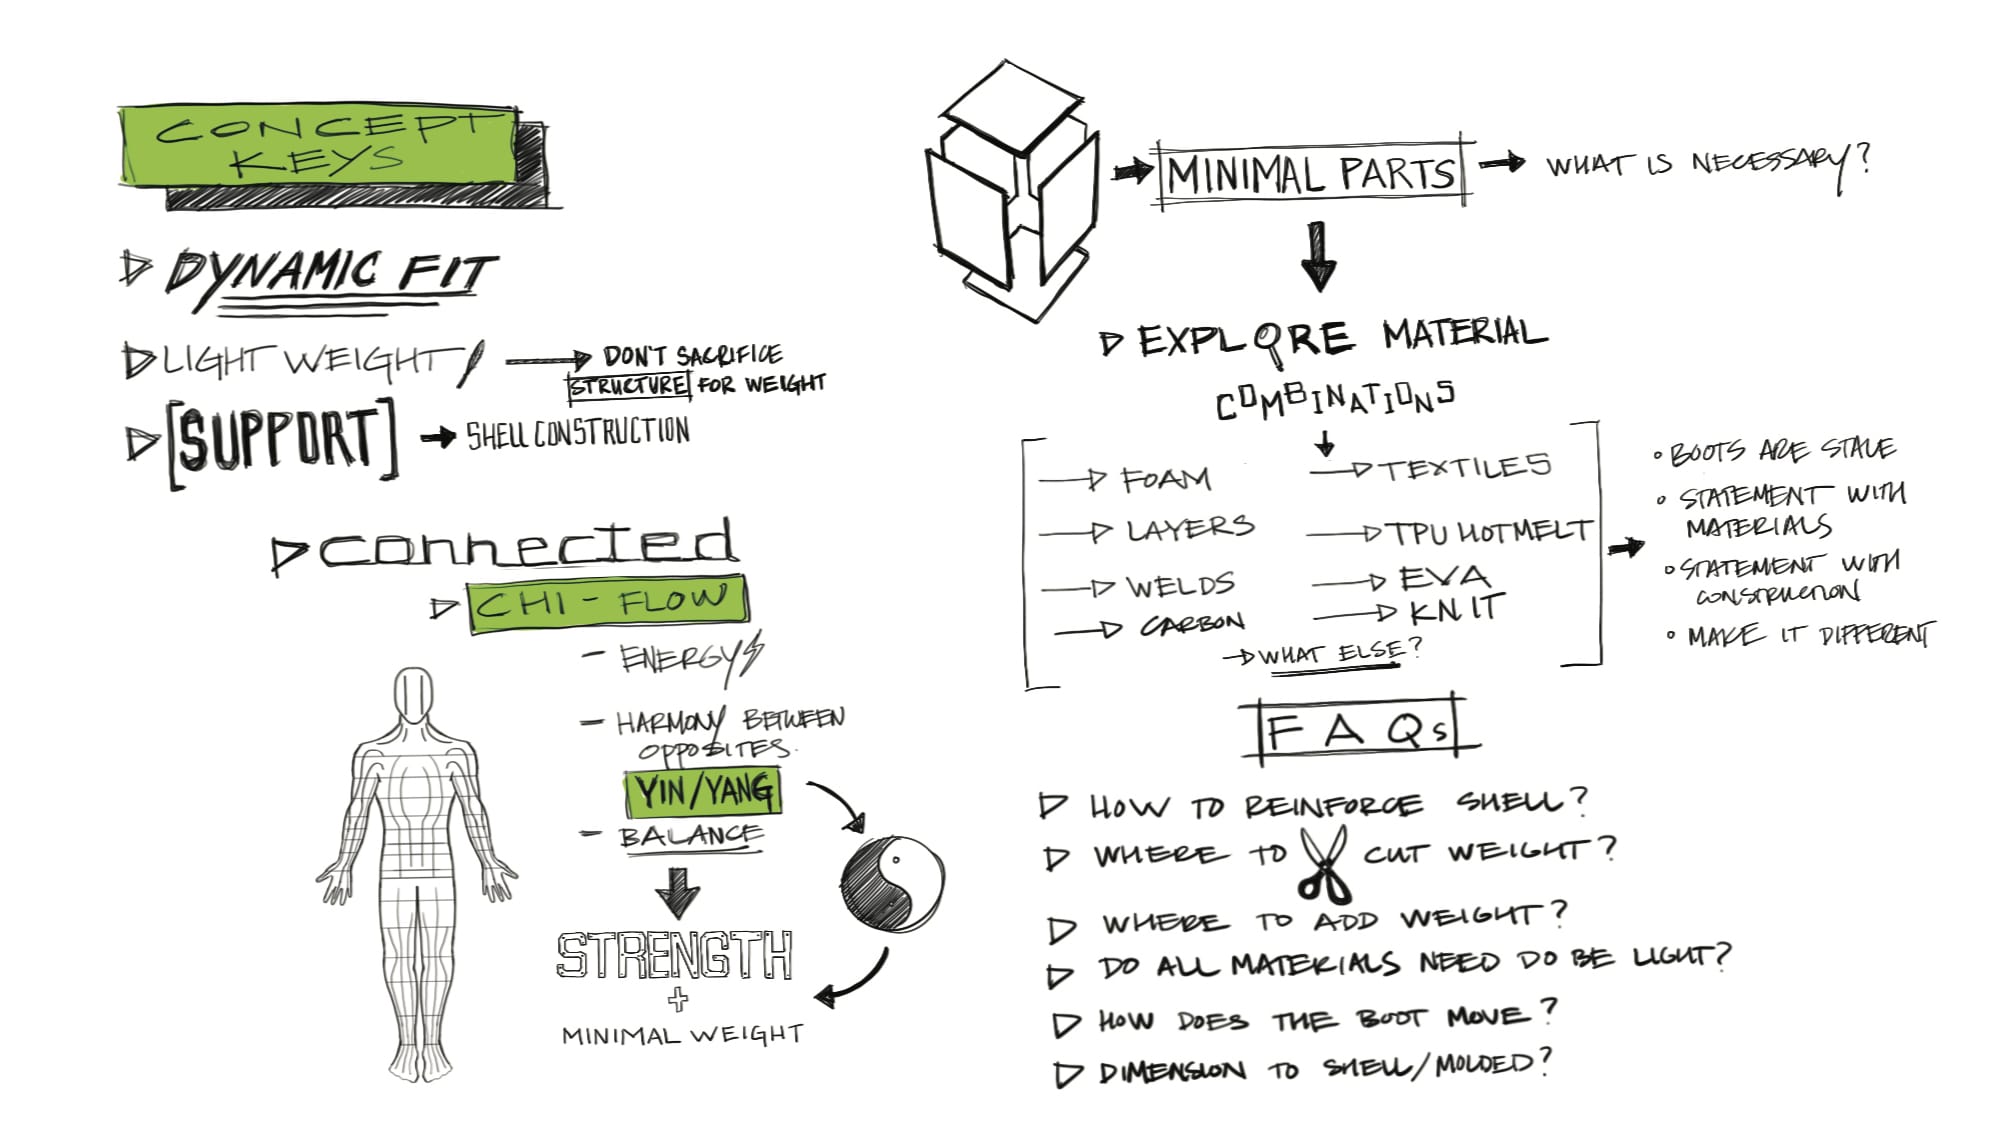 CONCEPT
KEYS
DYNAMIC FIT
LIGHT WEIGHT
DON'T SACRIFICE
STRUCTURE FOR WEIGHT
[SUPPORT]
SHELL CONSTRUCTION
connected
CHI - FLOW
- ENERGY
- HARMONY BETWEEN
OPPOSITES.
YIN/YANG
- BALANCE
STRENGTH
+
MINIMAL WEIGHT
MINIMAL PARTS
WHAT IS NECESSARY?
EXPLORE MATERIAL
COMBINATIONS
FOAM
LAYERS
WELDS
CARBON
TEXTILES
TPU HOTMELT
EVA
KNIT
WHAT ELSE?
• BOOTS ARE STALE
• STATEMENT WITH
MATERIALS
• STATEMENT WITH
CONSTRUCTION
• MAKE IT DIFFERENT
FAQs
HOW TO REINFORCE SHELL?
WHERE TO CUT WEIGHT?
WHERE TO ADD WEIGHT?
DO ALL MATERIALS NEED DO BE LIGHT?
HOW DOES THE BOOT MOVE?
DIMENSION TO SHELL/MOLDED?